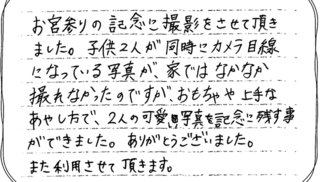 お宮参りの記念に撮影をさせて頂き
ました。子供2人が同時にカメラ目線
になっている写真が、家ではなかなか
撮れなかったのですが、おもちゃや上手な
あやし方で、2人の可愛い写真を記念に残す事
ができました。ありがとうございました。
また利用させて頂きます。